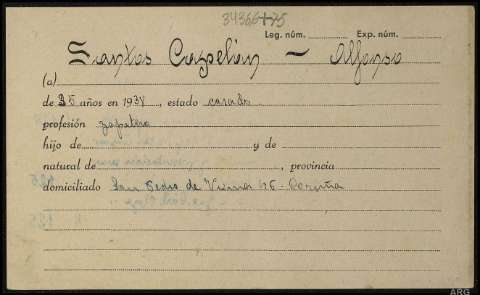 34366+75
Leg. núm. Exp. núm.
Santos Capelán - Alfonso
(a)
de 35 años en 1938, estado casado
profesión zapatero
hijo de y de
natural de , provincia
domiciliado San Pedro de Visma - Coruña
ARG